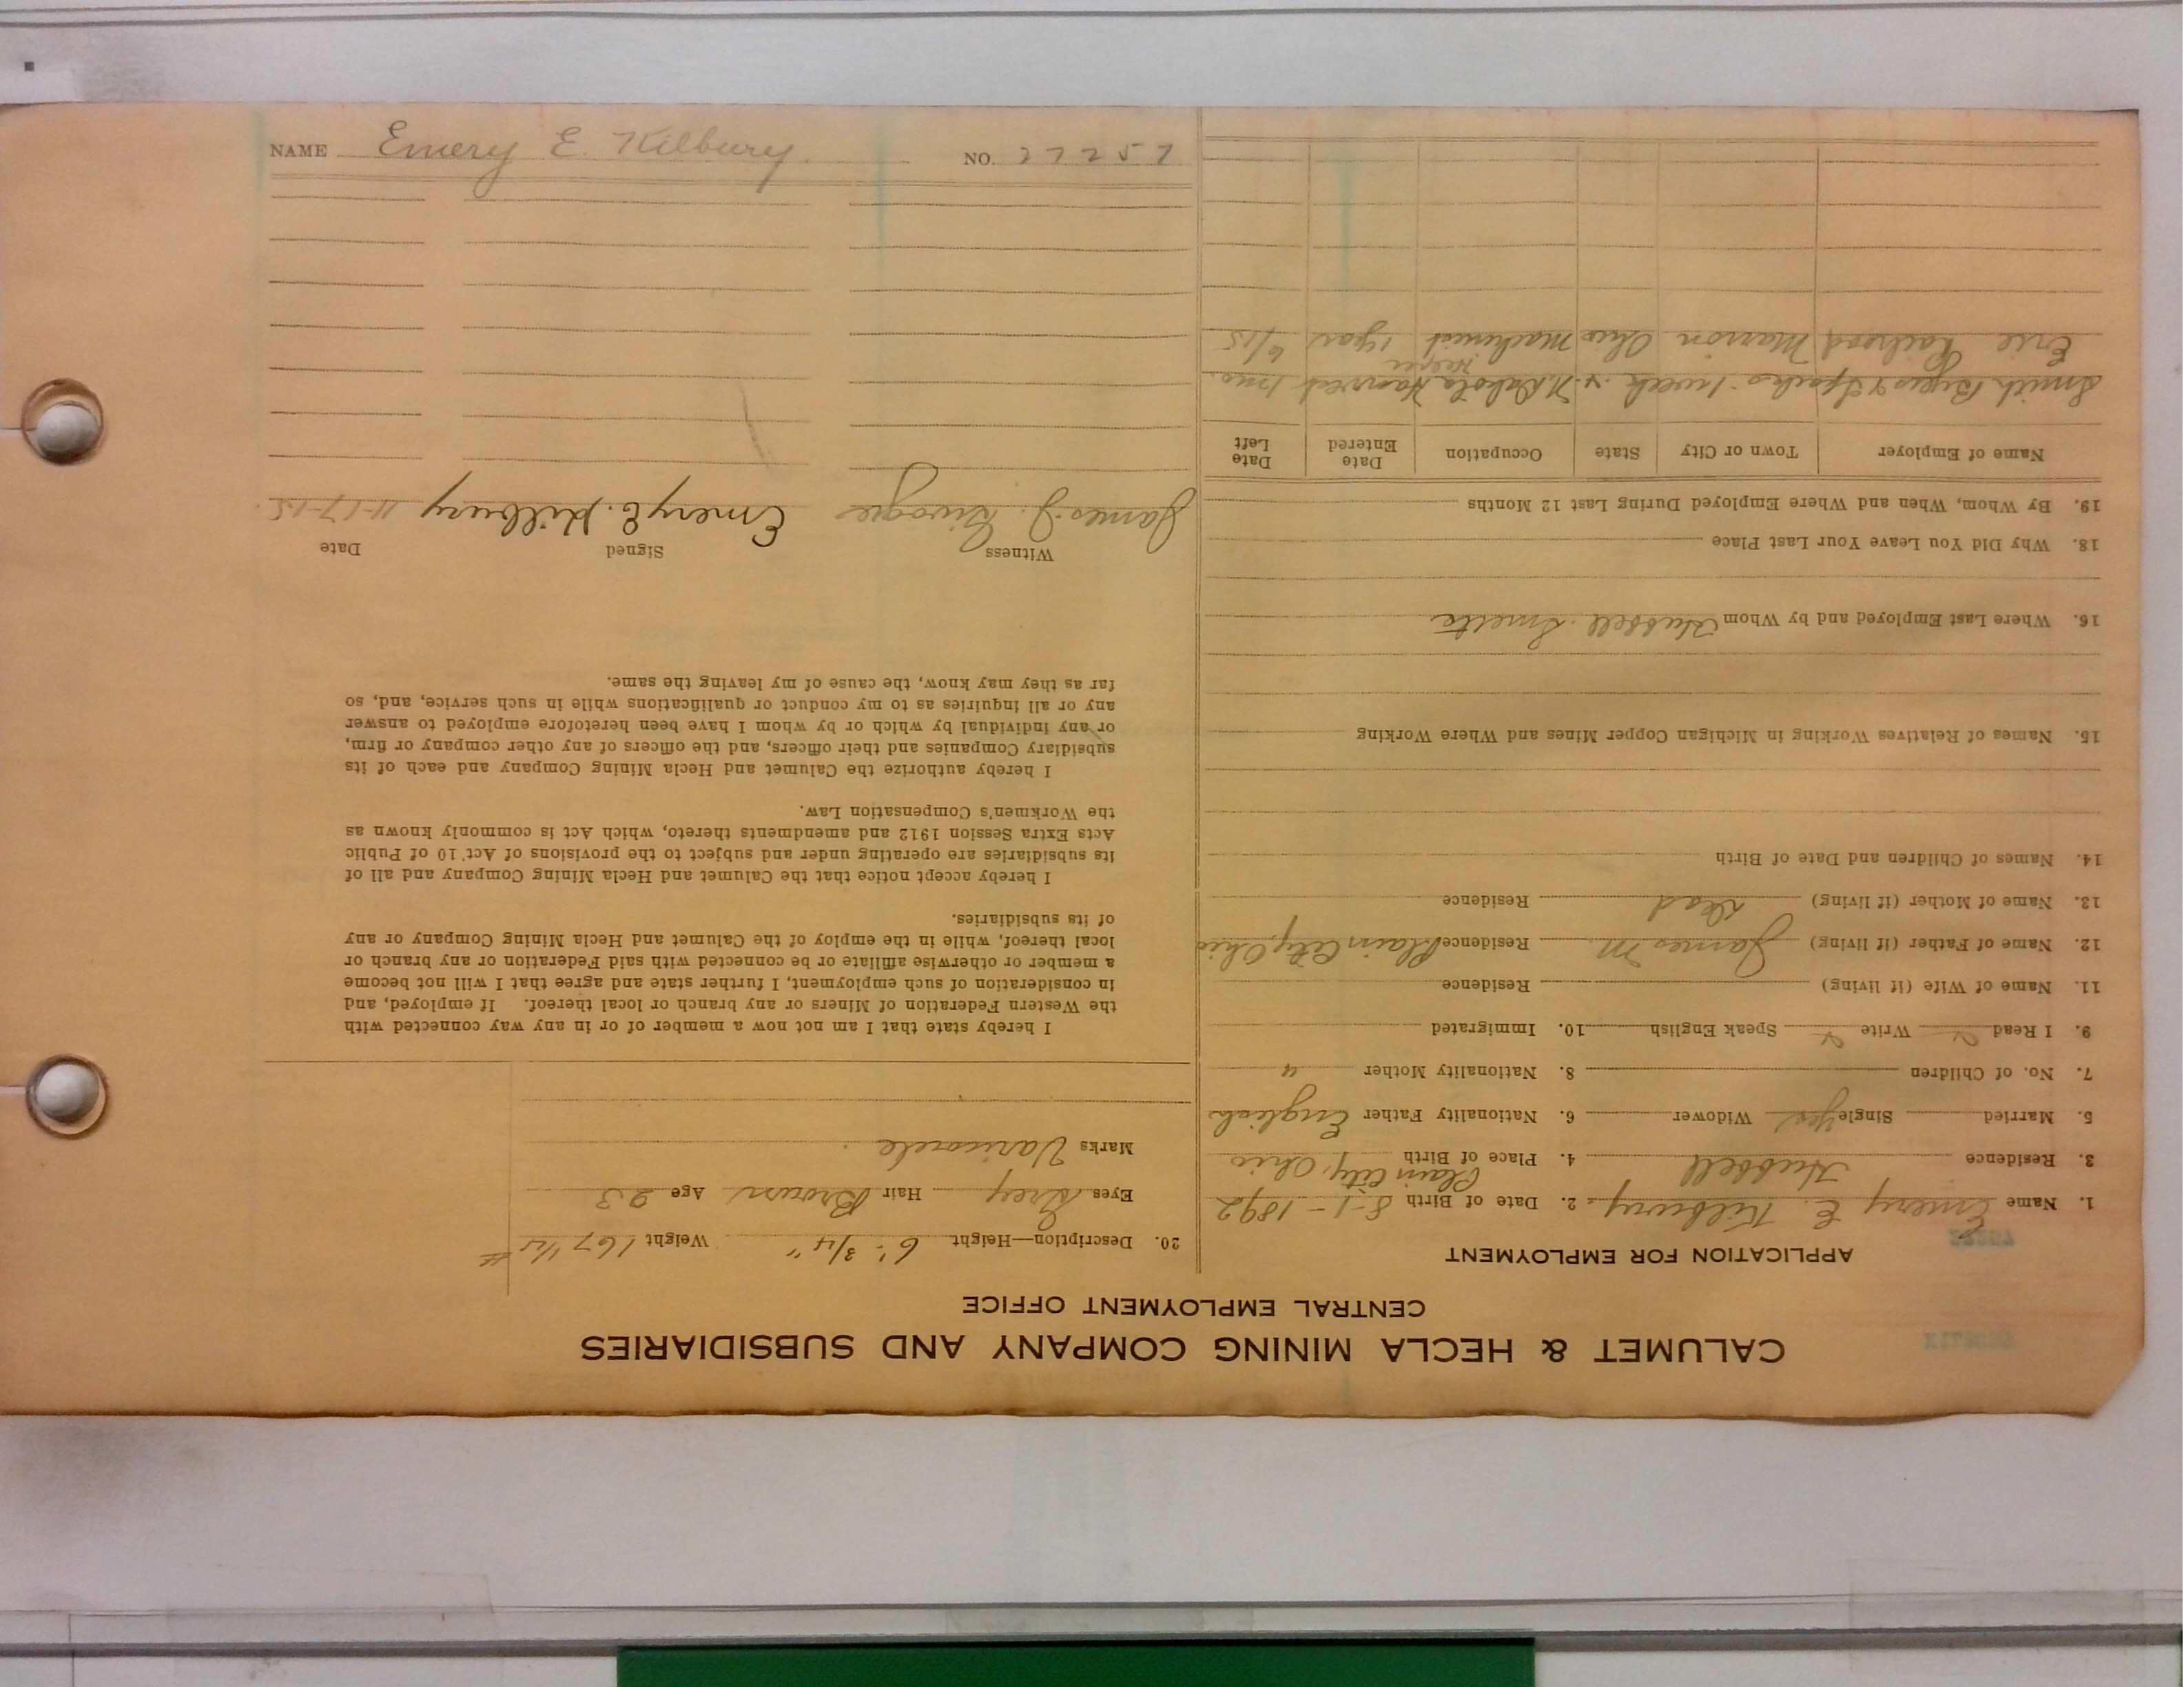 CALUMET & HECLA MINING COMPANY AND SUBSIDIARIES
CENTRAL EMPLOYMENT OFFICE
APPLICATION FOR EMPLOYMENT
1. Name Emery E. Kilbury. 2. Date of Birth 8-1-1892
3. Residence Hubbell 4. Place of Birth Plain City, Ohio
5. Married Single Yes Widower 6. Nationality Father English
7. No. of Children 8. Nationality Mother "
9. I Read Write Speak English 10. Immigrated
11. Name of Wife (if living) Residence
12. Name of Father (if living) James M. Residence Plain City, Ohio
13. Name of Mother (if living) Dead Residence
14. Names of Children and Date of Birth
15. Names of Relatives Working in Michigan Copper Mines and Where Working
16. Where Last Employed and by Whom Hubbell Smelter
18. Why Did You Leave Your Last Place
19. By Whom, When and Where Employed During Last 12 Months
Name of Employer Town or City State Occupation Date Entered Date Left
Smith 1 week N. Dakota Harvest 1 mo.
Erie Railroad Marion Ohio Machinist Helper 1 year 6/15
20. Description—Height 6'- 3/4" Weight 167
Eyes Grey Hair Brown Age 23
Marks Varicocele
I hereby state that I am not now a member of or in any way connected with
the Western Federation of Miners or any branch or local thereof. If employed, and
in consideration of such employment, I further state and agree that I will not become
a member or otherwise affiliate or be connected with said Federation or any branch or
local thereof, while in the employ of the Calumet and Hecla Mining Company or any
of its subsidiaries.
I hereby accept notice that the Calumet and Hecla Mining Company and all of
its subsidiaries are operating under and subject to the provisions of Act 10 of Public
Acts Extra Session 1912 and amendments thereto, which Act is commonly known as
the Workmen's Compensation Law.
I hereby authorize the Calumet and Hecla Mining Company and each of its
subsidiary Companies and their officers, and the officers of any other company or firm,
or any individual by which or by whom I have been heretofore employed to answer
any or all inquiries as to my conduct or qualifications while in such service, and, so
far as they may know, the cause of my leaving the same.
Witness Signed Date
James J. Emery E. Kilbury 11-17-15.
NAME Emery E. Kilbury. NO. 27257